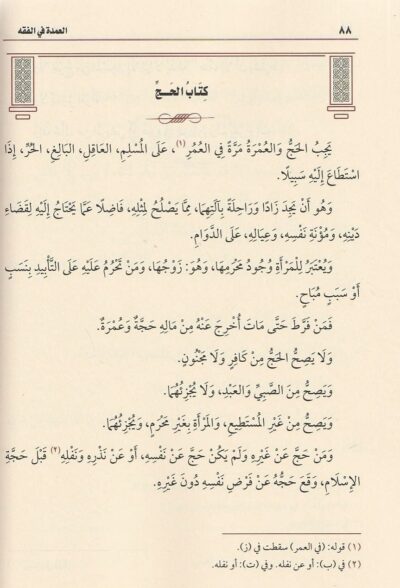 ٨٨ العمدة في الفقه
كِتَابُ الحَجِّ
يَجِبُ الحَجُّ وَالعُمْرَةُ مَرَّةً فِي العُمُرِ(١)، عَلَى المُسْلِمِ، العَاقِلِ، البَالِغِ، الحُرِّ، إِذَا
اسْتَطَاعَ إِلَيْهِ سَبِيلًا.
وَهُوَ أَنْ يَجِدَ زَادًا وَرَاحِلَةً بِآلَتِهِمَا، مِمَّا يَصْلُحُ لِمِثْلِهِ، فَاضِلًا عَمَّا يَحْتَاجُ إِلَيْهِ لِقَضَاءِ
دَيْنِهِ، وَمُؤْنَةِ نَفْسِهِ، وَعِيَالِهِ، عَلَى الدَّوَامِ.
وَيُعْتَبَرُ لِلْمَرْأَةِ وُجُودُ مَحْرَمِهَا، وَهُوَ: زَوْجُهَا، وَمَنْ تَحْرُمُ عَلَيْهِ عَلَى التَّأْبِيدِ بِنَسَبٍ
أَوْ سَبَبٍ مُبَاحٍ.
فَمَنْ فَرَّطَ حَتَّى مَاتَ أُخْرِجَ عَنْهُ مِنْ مَالِهِ حَجَّةٌ وَعُمْرَةٌ.
وَلَا يَصِحُّ الحَجُّ مِنْ كَافِرٍ وَلَا مَجْنُونٍ.
وَيَصِحُّ مِنَ الصَّبِيِّ وَالعَبْدِ، وَلَا يُجْزِئُهُمَا.
وَيَصِحُّ مِنْ غَيْرِ المُسْتَطِيعِ، وَالمَرْأَةِ بِغَيْرِ مَحْرَمٍ، وَيُجْزِئُهُمَا.
وَمَنْ حَجَّ عَنْ غَيْرِهِ وَلَمْ يَكُنْ حَجَّ عَنْ نَفْسِهِ، أَوْ عَنْ نَذْرِهِ وَنَفْلِهِ(٢) قَبْلَ حَجَّةِ
الإِسْلَامِ، وَقَعَ حَجُّهُ عَنْ فَرْضِ نَفْسِهِ دُونَ غَيْرِهِ.
(١) قوله: (في العمر) سقطت في (ز).
(٢) في (ب): أو عن نفله. وفي (ت): أو نفله.